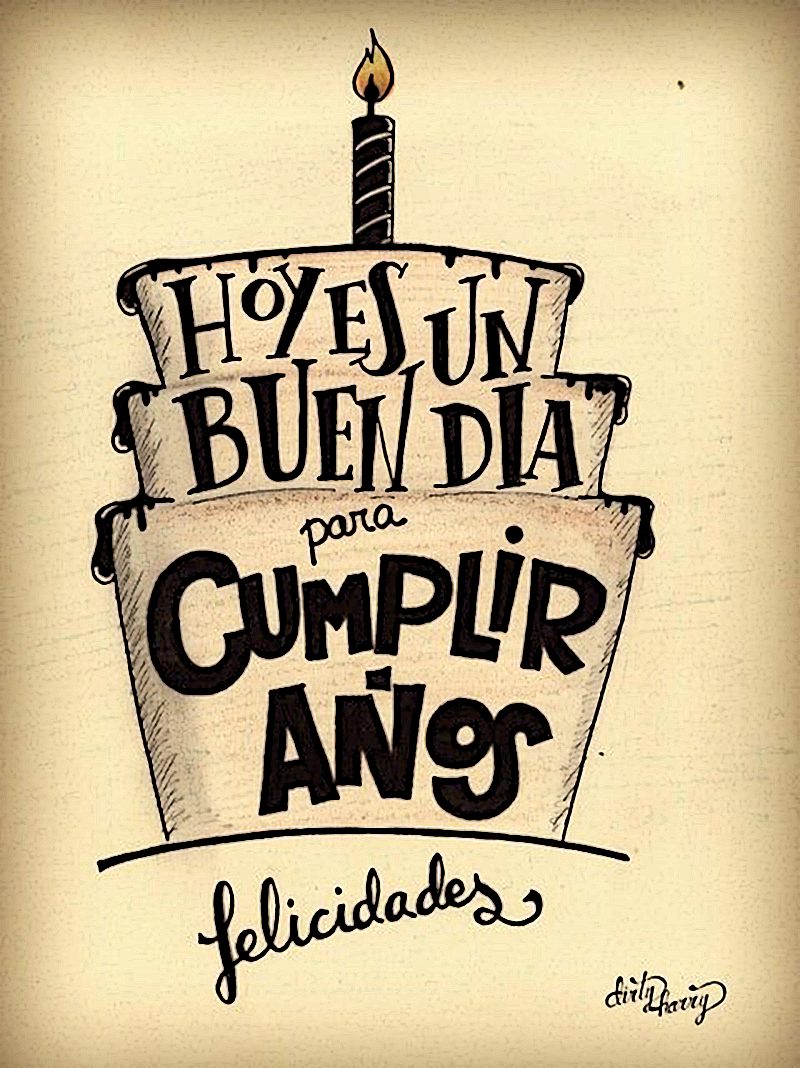 HOY ES UN
BUEN DIA
para
CUMPLiR
AÑOS
felicidades
dirty harry